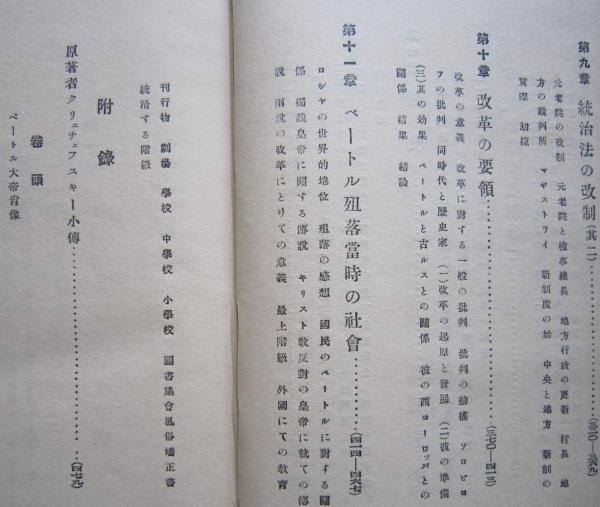 第九章 統治法の改制(其二)…………(三二〇―三六九)
元老院の改制 元老院と檢事總長 地方行政の更新 村長 地
方の裁判所 マヂストラト 新制度の始 中央と地方 新制の
實際 劫掠
第十章 改革の要領…………(三七〇―四一三)
改革の意義 改革に對する一般の批判 批判の動搖 ソロヒヨ
フの批判 同時代と歴史家 (一)改革の起原と發展 (二)彼の準備
(三)其の効果 ペートルと古ルスとの關係 彼の西ヨーロッパとの
關係 結果 結論
第十一章 ペートル殂落當時の社會…………(四一四―四六七)
ロシヤの世界的地位 殂落の感想 國民のペートルに對する關
係 僭織皇帝に關する傳説 キリスト敎反對の皇帝に就ての傳
説 兩説の改革にとりての意義 最上階級 外國にての敎育
刊行物 劇場 學校 中學校 小學校 圖書集會風俗矯正書
統治する階級
附錄
原著者クリュチェフスキー小傳…………(四七九)
卷頭
ペートル大帝肖像